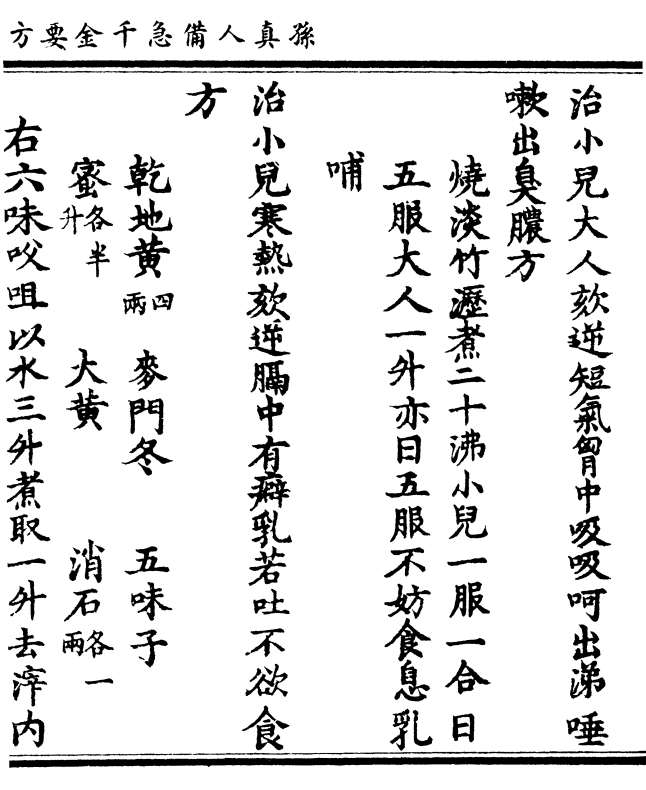 孫真人備急千金要方
治小兒大人欬逆短氣胷中吸吸呵出涕唾
嗽出臭膿方
燒淡竹瀝煮二十沸小兒一服一合日
五服大人一升亦日五服不妨食息乳
哺
治小兒寒熱欬逆膈中有癖乳若吐不欲食
方
乾地黄四兩 麥門冬 五味子
蜜各半升 大黄 消石各一兩
右六味㕮咀以水三升煮取一升去滓内